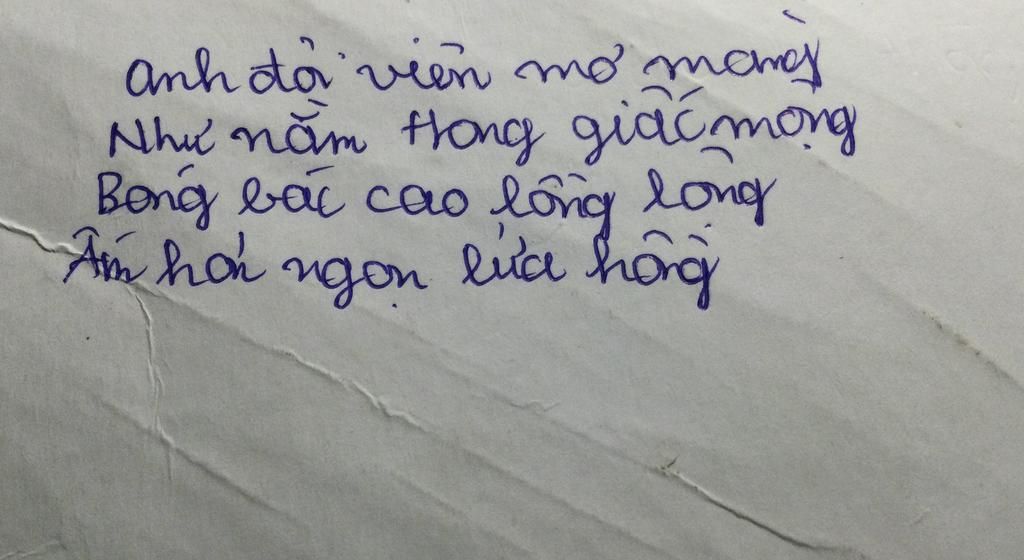 Anh đội viên mơ màng
Như nằm trong giấc mộng
Bóng bác cao lồng lộng
Ấm hơn ngọn lửa hồng